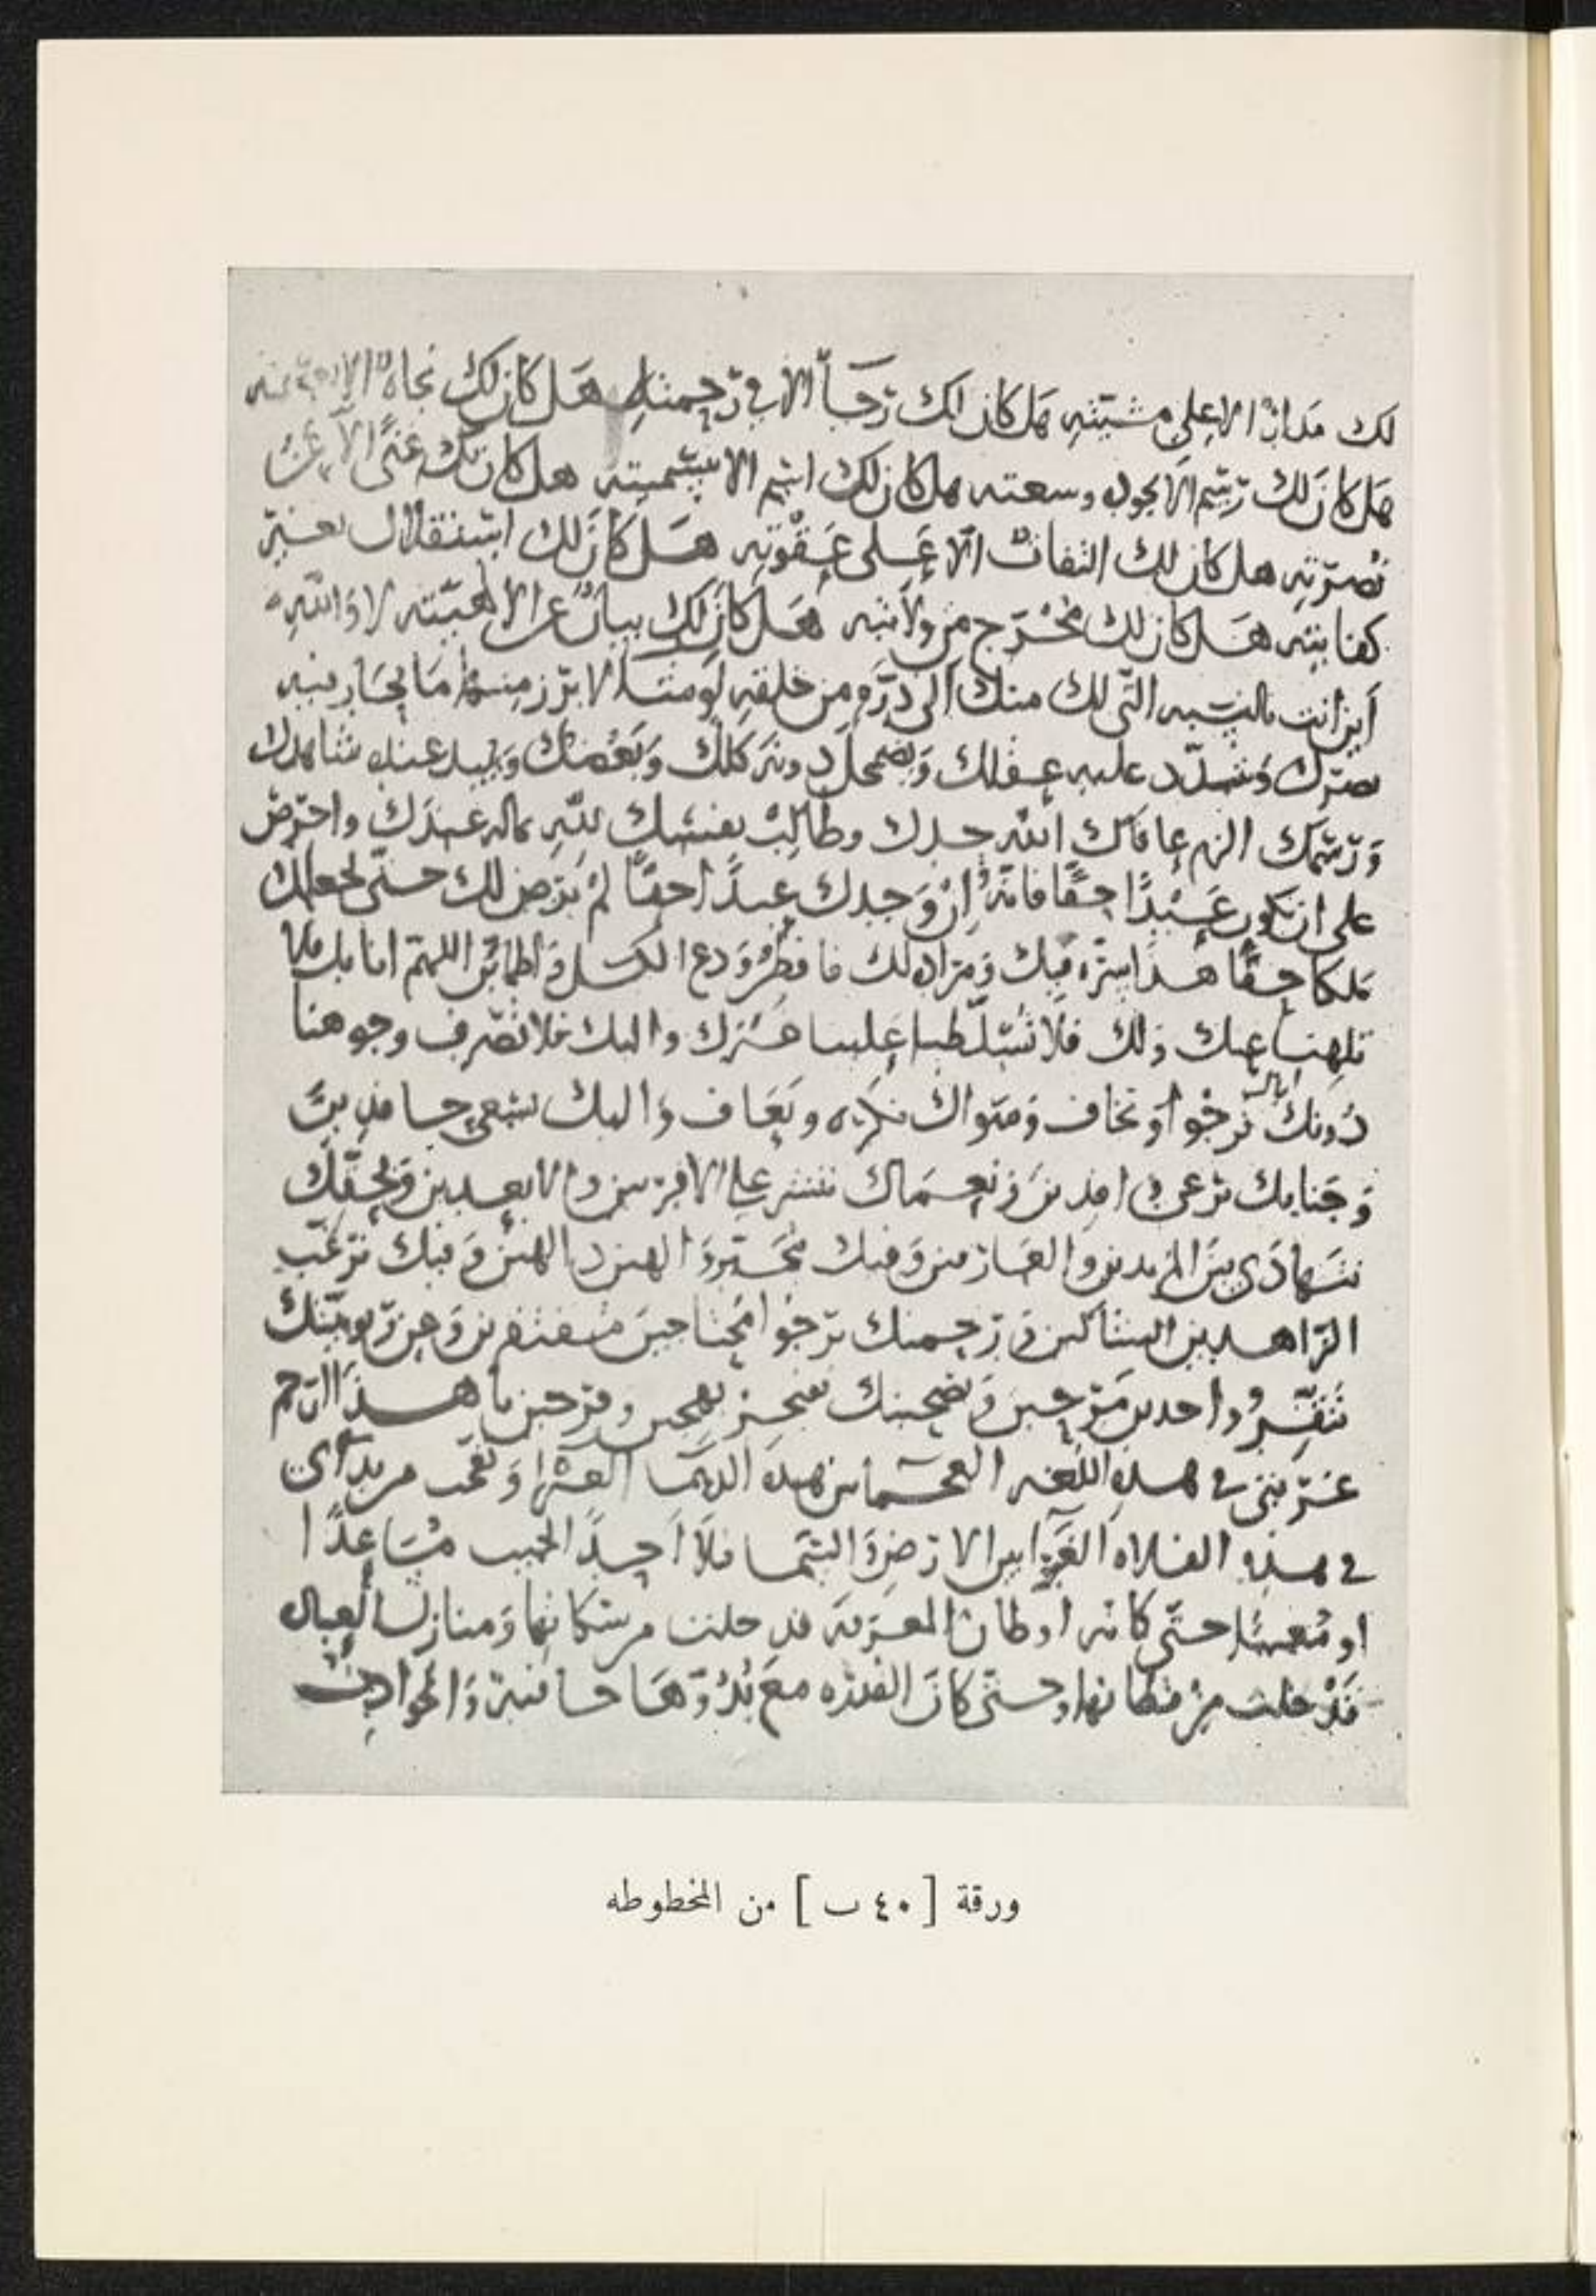 لك مدار الا على مشيته هل كان لك رجاء الا في رحمته هل كان لك نجاة الا
هل كان لك رسم الا بجوده وسعته هل كان لك اسم الا بتسميته هل كان لك غنى الا عن
نصرته هل كان لك التفات الا على عقوته هل كان لك استقلال بغير
كفايته هل كان لك مخرج من ولايته هل كان لك بيان عن الالهيته لا والله
أين انت بالنسبه التي لك منك الى ذره من خلقه لو مثلا لا برز منها ما يحار فيه
بصرك وتشدد عليه عقلك ويضمحل دونه كلك وبعضك ويبيد عنك شاهدك
ورسمك الزم عافاك الله حدك وطالب نفسك لله بماله عندك واحرص
على ان تكون عبدا حقا فانه ان وجدك عبدا حقا لم يرض لك حتى يجعلك
ملكا حقا هذا سره فيك ومراده لك فافطن ودع الكسل واطمأن اللهم انا بك
نلهى عنك ذلك فلا تسلط علينا غيرك واليك فلا تصرف وجوهنا
دونك اياك نرجوا او نخاف وسواك نكره ونعاف واليك نسعى حافدين
وجنابك نرعى وافدين ونعماك ننشر على الاقربين والابعدين وبحقك
نتهادى بين المريدين والعارفين وفيك نحير والهين بالهين وفيك نرغب
الزاهدين الشاكين ورحمتك نرجوا مجتاحين مستغفرين وعن ربوبيتك
نقر واحدين مرحين وبصحبتك نفتخر بهجين وفرحين ما هذا الترحم
غربتي في هذه اللغه العجما من هذه الديما العرا وتعجب مريد اي
في هذه الفلاه الغبرا بين الارض والسما فلا احد الحبيب مساعدا
او مسعدا حتى كانه اوطان المعرفه قد خلت من سكانها ومنازل العباد
قد خلت من قطانها وحتى كان القدره مع بدوها خافية والحوادث
ورقة [ ٤٠ ب ] من المخطوطه